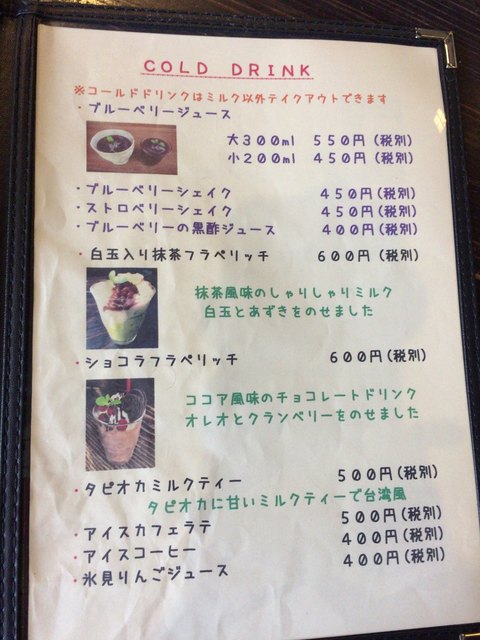 COLD DRINK
※コールドドリンクはミルク以外テイクアウトできます
・ブルーベリージュース
大300ml 550円(税別)
小200ml 450円(税別)
・ブルーベリーシェイク 450円(税別)
・ストロベリーシェイク 450円(税別)
・ブルーベリーの黒酢ジュース 400円(税別)
・白玉入り抹茶フラペリッチ 600円(税別)
抹茶風味のしゃりしゃりミルク
白玉とあずきをのせました
・ショコラフラペリッチ 600円(税別)
ココア風味のチョコレートドリンク
オレオとクランベリーをのせました
・タピオカミルクティー 500円(税別)
タピオカに甘いミルクティーで台湾風
・アイスカフェラテ 500円(税別)
・アイスコーヒー 400円(税別)
・氷見りんごジュース 400円(税別)